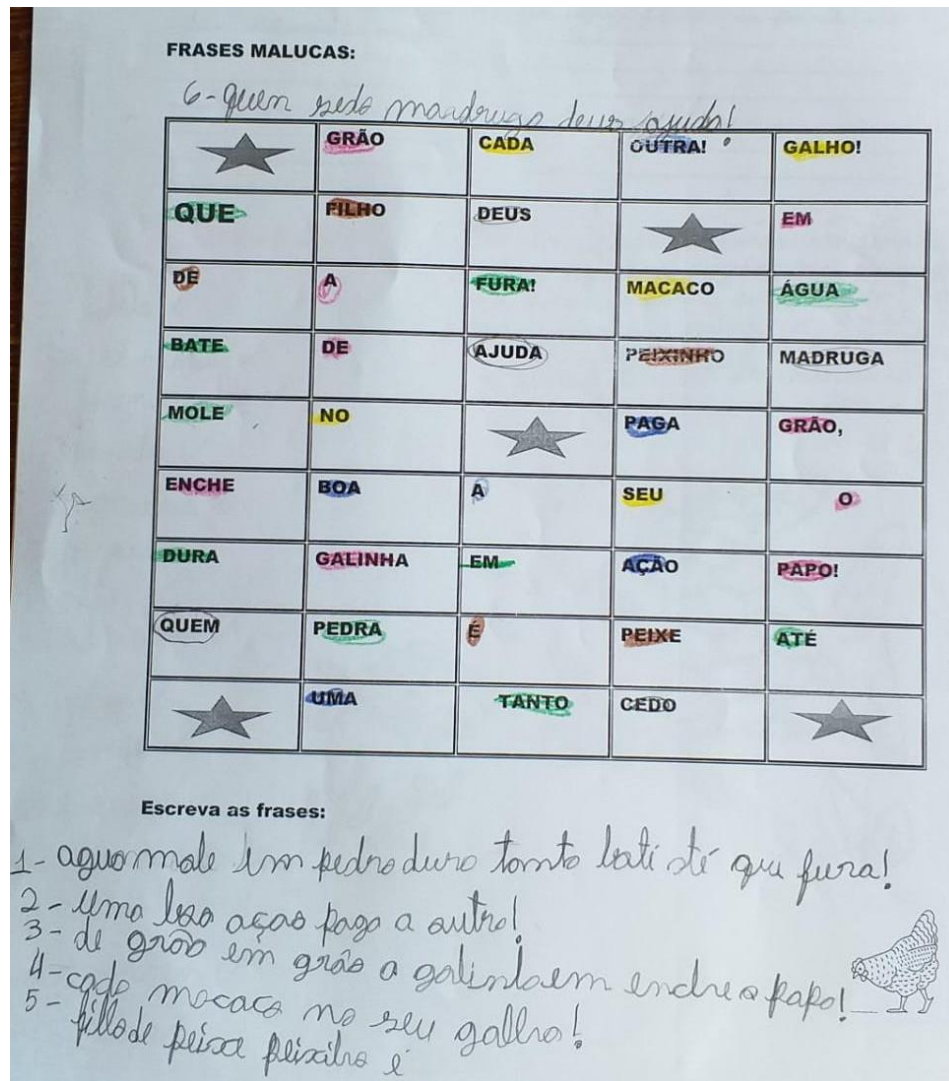 FRASES MALUCAS:
6- quem sedo madruga deus ajuda!
GRÃO CADA OUTRA! GALHO!
QUE FILHO DEUS EM
DE A FURA! MACACO ÁGUA
BATE DE AJUDA PEIXINHO MADRUGA
MOLE NO PAGA GRÃO,
ENCHE BOA A SEU O
DURA GALINHA EM AÇÃO PAPO!
QUEM PEDRA É PEIXE ATÉ
UMA TANTO CEDO
Escreva as frases:
1- agua mole em pedra dura tanto bati até que fura!
2- uma boa açao paga a outra!
3- de grão em grão a galinha em enche o papo!
4- cada macaco no seu galho!
5- filho de peixe peixinho é